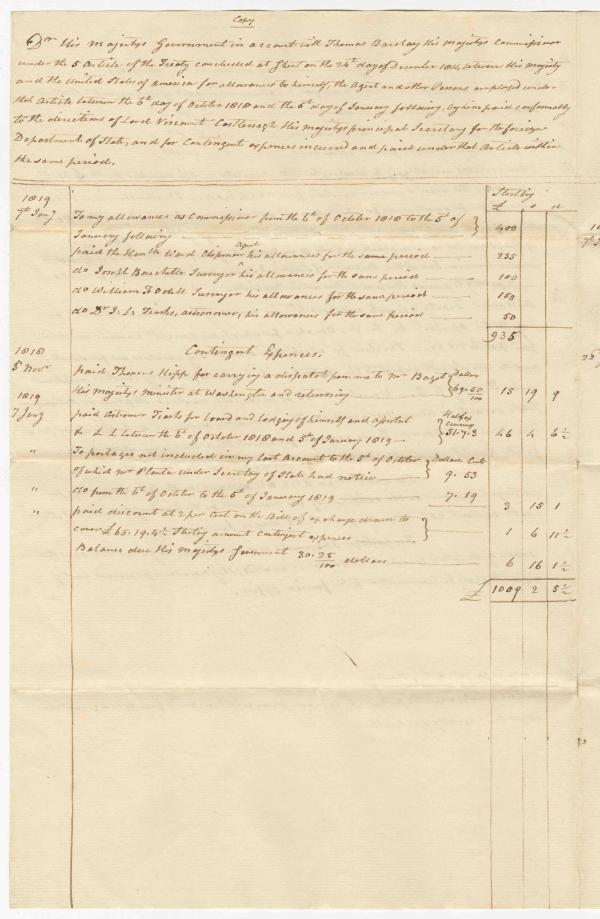 Copy
Dr His Majestys Government in account with Thomas Barclay His Majestys Commissioner
under the 5 Article of the Treaty concluded at Ghent on the 24th day of December 1814 between His Majesty
and the United States of America for allowances to himself, the Agent and other Persons employed under
that Article between the 6th day of October 1818 and the 5th day of January following, by him paid conformably
to the directions of Lord Viscount Castlereagh His Majestys principal Secretary for the foreign
Department of State, and for Contingent expences incurred and paid under that Article within
the same period.
Sterling
£ s d
1819
7th Jany To my allowances as Commissioner from the 6th of October 1818 to the 5th of
January following 400
paid the Honble Ward Chipman agent his allowances for the same period 235
do Joseph Bouchette Surveyor his allowances for the same period 100
do William F Odell Surveyor his allowances for the same period 150
do Dr J. L. Tiarks, astronomer, his allowances for the same period 50
935
Contingent Expences.
1818
5 Novr paid Thomas Hipp for carrying a dispatch from me to Mr Bagot Dollars
His Majestys Minister at Washington and returning 69.50/100 15 19 9
1819
7 Jany paid Astronomer Tiarks for board and lodging of himself and Halifax
& between the 6th of October 1818 and 5th of January 1819 currency 51.7.3 46 4 6½
" To postages not included in my last Account to the 5th of October Dollars Cents
of which Mr Planta under Secretary of State had notice 9. 53
" do from the 6th of October to the 5th of January 1819 7. 19 3 15 1
" paid discount at 2 per Cent on the Bill of exchange drawn to
cover £65.19.4½ Sterling amount contingent expences 1 6 11½
Balance due His Majestys Government 30.25/100 dollars 6 16 1½
£ 1009 2 5½